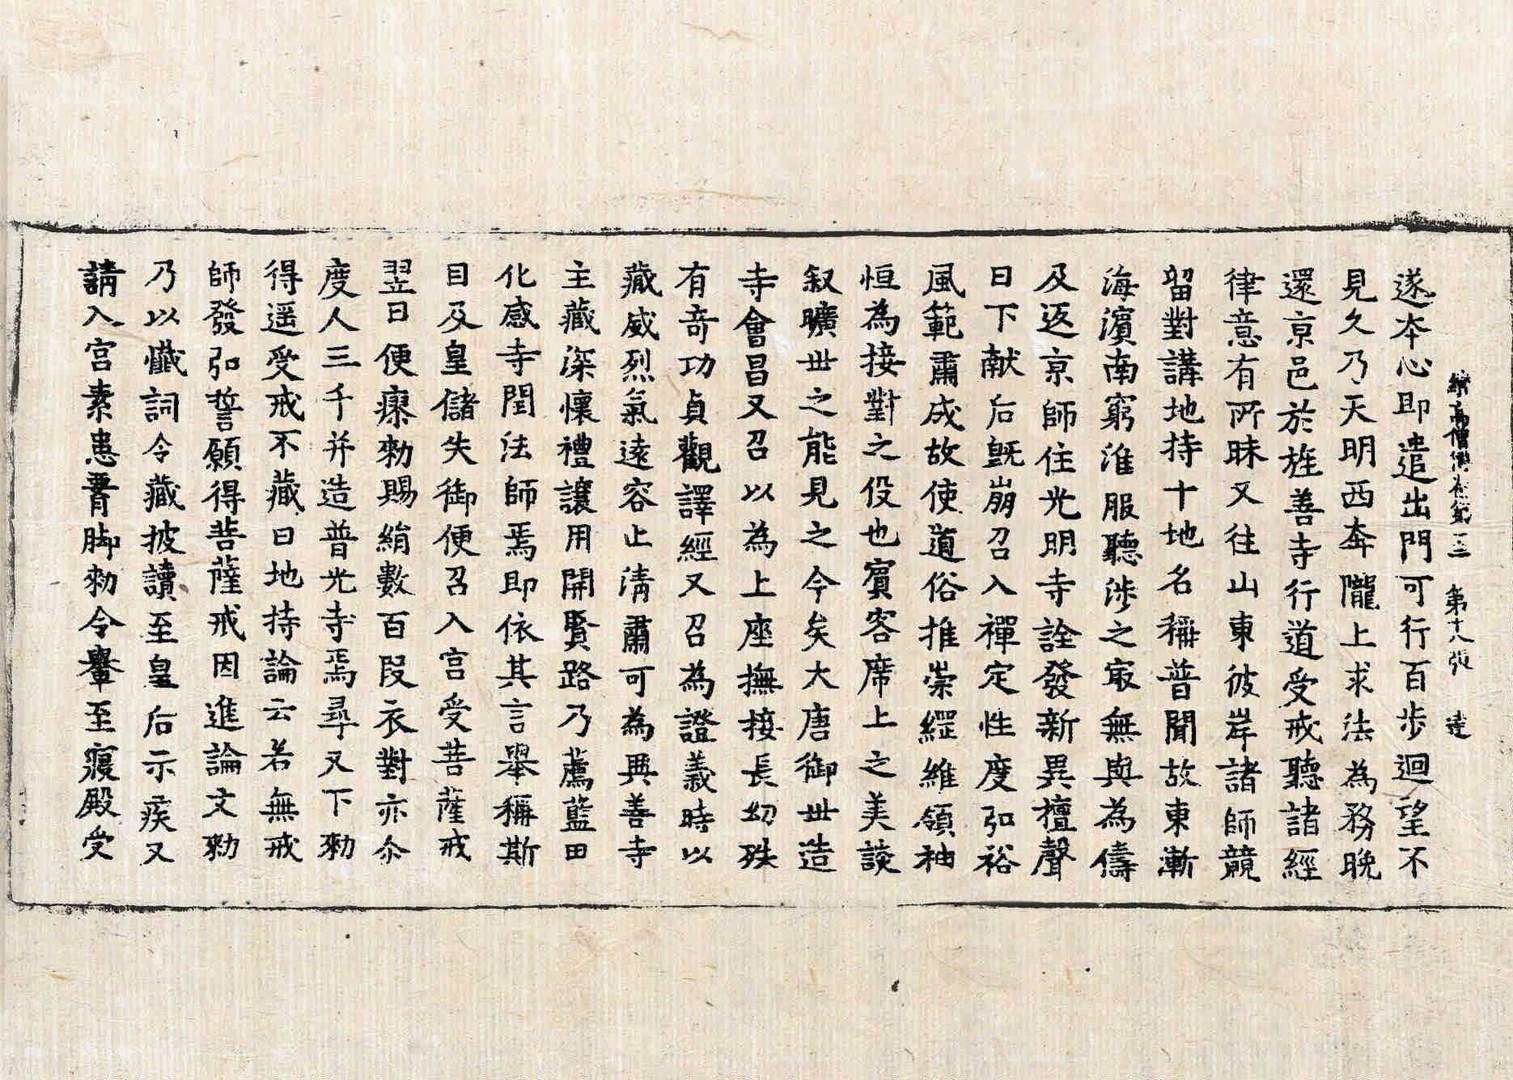 續高僧傳卷第二三 第十八張 達
遂本心即遣出門可行百步迴望不
見久乃天明西奔隴上求法為務晚
還京邑於旌善寺行道受戒聽諸經
律意有所昧又往山東彼岸諸師競
留對講地持十地名稱普聞故東漸
海濱南窮淮服聽涉之最無與為儔
及返京師住光明寺詮發新異擅聲
日下献后旣崩召入禪定性度弘裕
風範肅成故使道俗推崇綱維領袖
恒為接對之役也賓客席上之美談
叙曠世之能見之今矣大唐御世造
寺會昌又召以為上座撫接長幼殊
有奇功貞觀譯經又召為證義時以
藏威烈氣遠容止清肅可為興善寺
主藏深懷禮讓用開賢路乃薦藍田
化感寺閏法師焉即依其言舉稱斯
目及皇儲失御便召入宮受菩薩戒
翌日便瘳勑賜絹數百段衣對亦尒
度人三千并造普光寺焉尋又下勑
得遥受戒不藏曰地持論云若無戒
師發弘誓願得菩薩戒因進論文勑
乃以懺詞令藏披讀至皇后示疾又
請入宮素患脚勑令轝至寢殿受